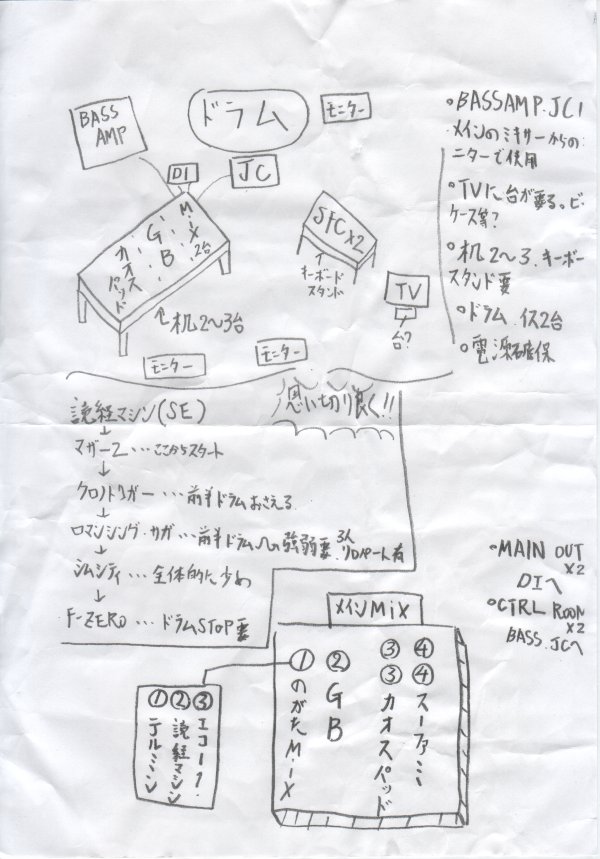 BASS AMP
ドラム
モニター
DI
JC
M・iX 2台
G・B
カオスパッド
SFC×2
キーボードスタンド
TV
台?
机2〜3台
モニター
モニター
°BASSAMP.JC1
メインのミキサーからの
ニターで使用
°TVに台が要る。ビ
ケース等?
°机2〜3.キーボー
スタンド要
°ドラム.イス2台
°電源確保
思い切り良く!!
読経マシン(SE)
↓
マザー2…ここからスタート
↓
クロノトリガー…前半ドラムおさえる
↓
ロマンシング・サガ…前半ドラムへの強弱要 3人ソロパート有
↓
シムシティ…全体的に少め
↓
F-ZERO…ドラムSTOP要
°MAIN OUT ×2
DIへ
°CTRL ROOM ×2
BASS.JCへ
メインMiX
①のがたM・iX
②GB
③③カオスパッド
④④スーファミ
①テルミン
②読経マシン
③エコー